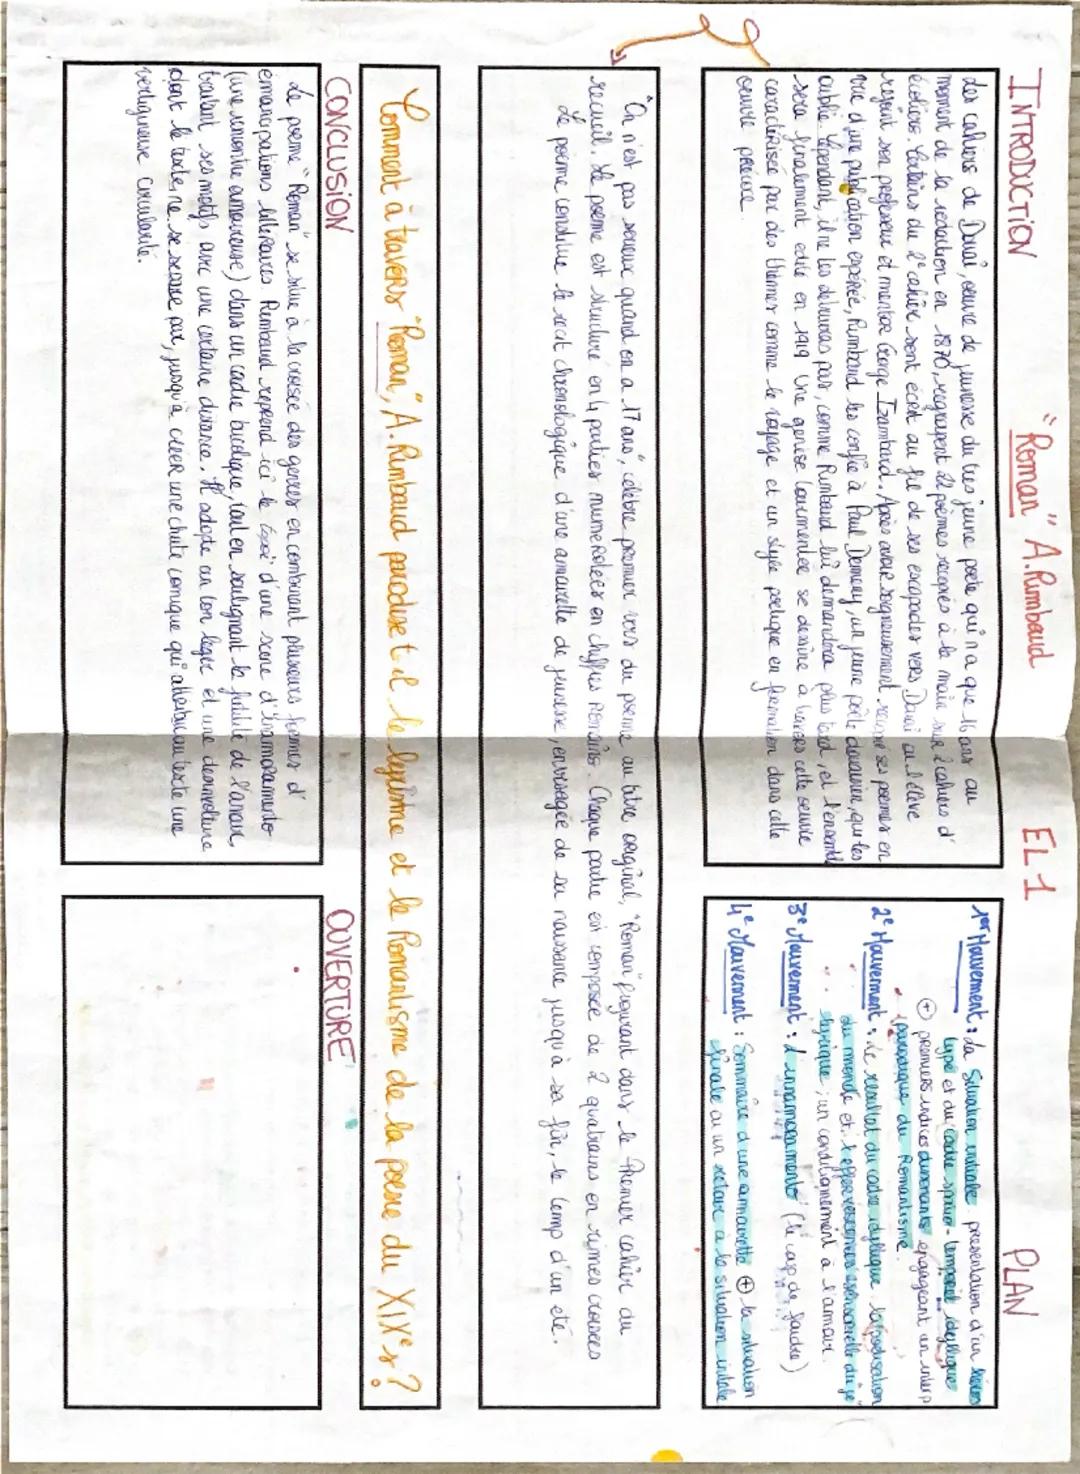 INTRODUCTION "Roman" A.Rimbaud EL 1 PLAN
Les cahiers de Douai, œuvre de jeunesse du très jeune poète qui n'a que 16 ans au
moment de la rédaction en 1870, regroupent 22 poèmes recopiés à la main sur 2 cahiers d'
écoliers. Certains du 2e cahier sont écrit au fil de ses escapades vers Douai où l'élève
rejoint son professeur et mentor George Izambard. Après avoir soigneusement recopié ses poèmes en
vue d'une publication espérée, Rimbaud les confie à Paul Demeny, un jeune poète douaisien, qui les
oublie. Cependant, il ne les détruiras pas, comme Rimbaud lui demandera plus tard, et l'ensemble
sera finalement édité en 1919. Une genèse tourmentée se dessine à travers cette oeuvre
caractérisée par des thèmes comme le voyage et un style poétique en formation dans cette
oeuvre précoce.
1er Mouvement : La Situation initiale présentation d'un héros
type et du cadre spatio-temporel idyllique
⊕ premiers indices dissonants engageant un interp
parodique du Romantisme.
2e Mouvement : Le résultat du cadre idyllique la poétisation
du monde et l'effervescence sensorielle du je
lyrique ; un conditionnement à l'amour.
3e Mouvement : L'innamoramento (le coup de foudre)
4e Mouvement : Sommaire d'une amourette ⊕ la situation
finale ou un retour à la situation initiale
"On n'est pas sérieux, quand on a 17 ans", célèbre premier vers du poème au titre original, "Roman" figurant dans le Premier cahier du
recueil. Le poème est structuré en 4 parties numérotées en chiffres Romains. Chaque partie est composée de 2 quatrains en rimes croisées
Le poème constitue le récit chronologique d'une amourette de jeunesse, envisagée de sa naissance jusqu'à sa fin, le temp d'un été.
Comment à travers "Roman", A. Rimbaud parodise t-il le lyrisme et le Romantisme de la poésie du XIXe s ?
CONCLUSION
Le poème "Roman" se situe à la croisée des genres en combinant plusieurs formes d'
émancipations littéraires. Rimbaud reprend ici le topoï d'une scène d'innamoramento
(une rencontre amoureuse) dans un cadre bucolique, tout en soulignant la futilité de l'amour,
traitant ses motifs avec une certaine distance. Il adopte un ton léger et une désinvolture
dont le texte ne se sépare pas, jusqu'à créer une chute comique qui attribue au texte une
vertigineuse circularité.
OUVERTURE